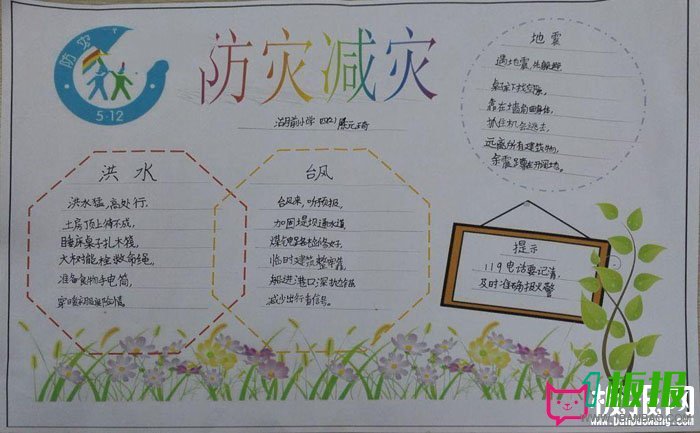 防灾
5·12
防灾减灾
地震
遇地震,先躲避
桌床下找空隙,
靠在墙角曲身体,
抓住机会逃去,
远离所有建筑物,
余震蹲在开阔地。
洪水
洪水猛,高处行,
土房顶上待不成,
睡床桌子扎木筏,
大树能拴救命绳。
准备食物手电筒,
穿暖衣服度险情。
台风
台风来,听预报,
加固堤坝通水道
煤气电路检修好,
临时建筑整牢靠。
船进港口深抛锚
减少出行看信号。
提示
119电话要记清,
及时准确报火警
板报